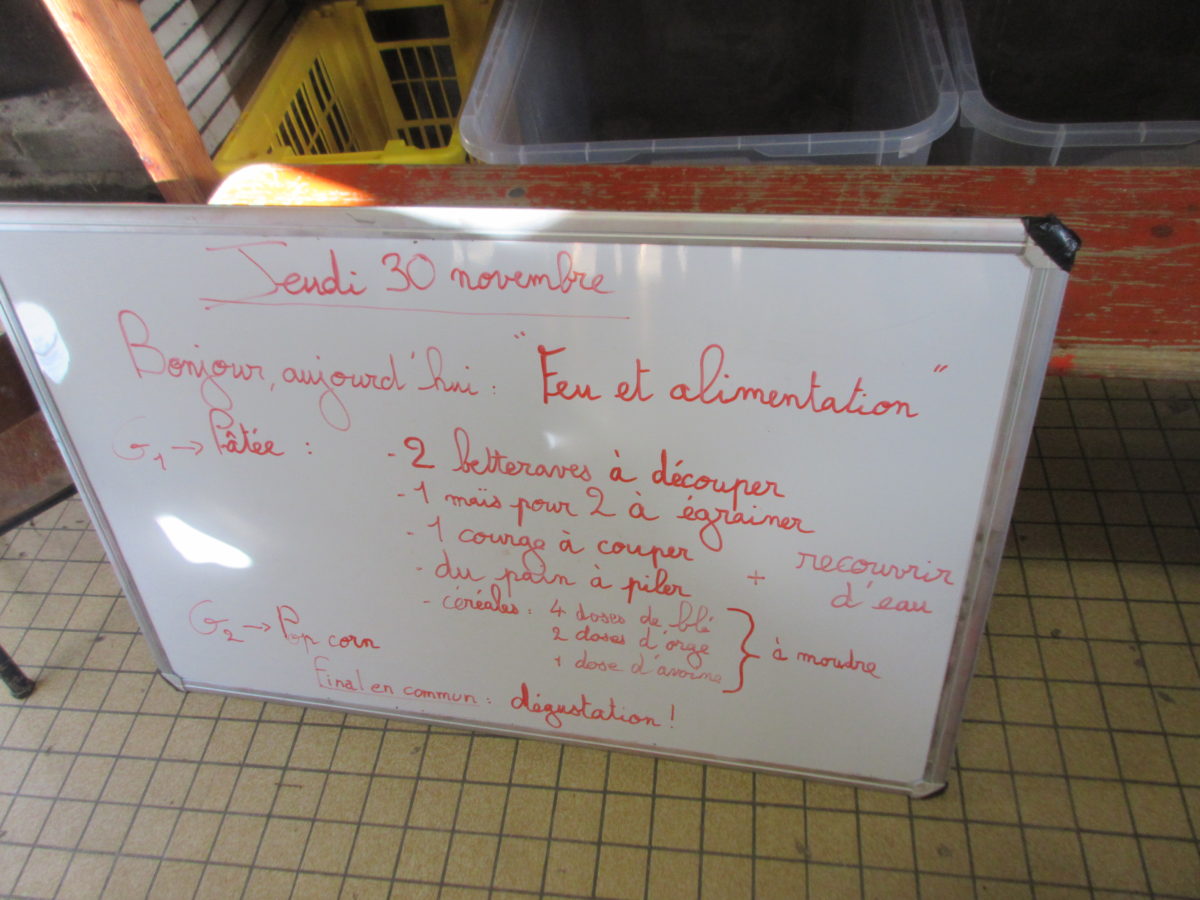 Jeudi 30 novembre
Bonjour, aujourd'hui : "Feu et alimentation"
G1 → Pâtée : - 2 betteraves à découper
- 1 maïs pour 2 à égrainer
- 1 courge à couper
- du pain à piler + recouvrir d'eau
- céréales : 4 doses de blé
2 doses d'orge
1 dose d'avoine } à moudre
G2 → Pop corn
Final en commun : dégustation !